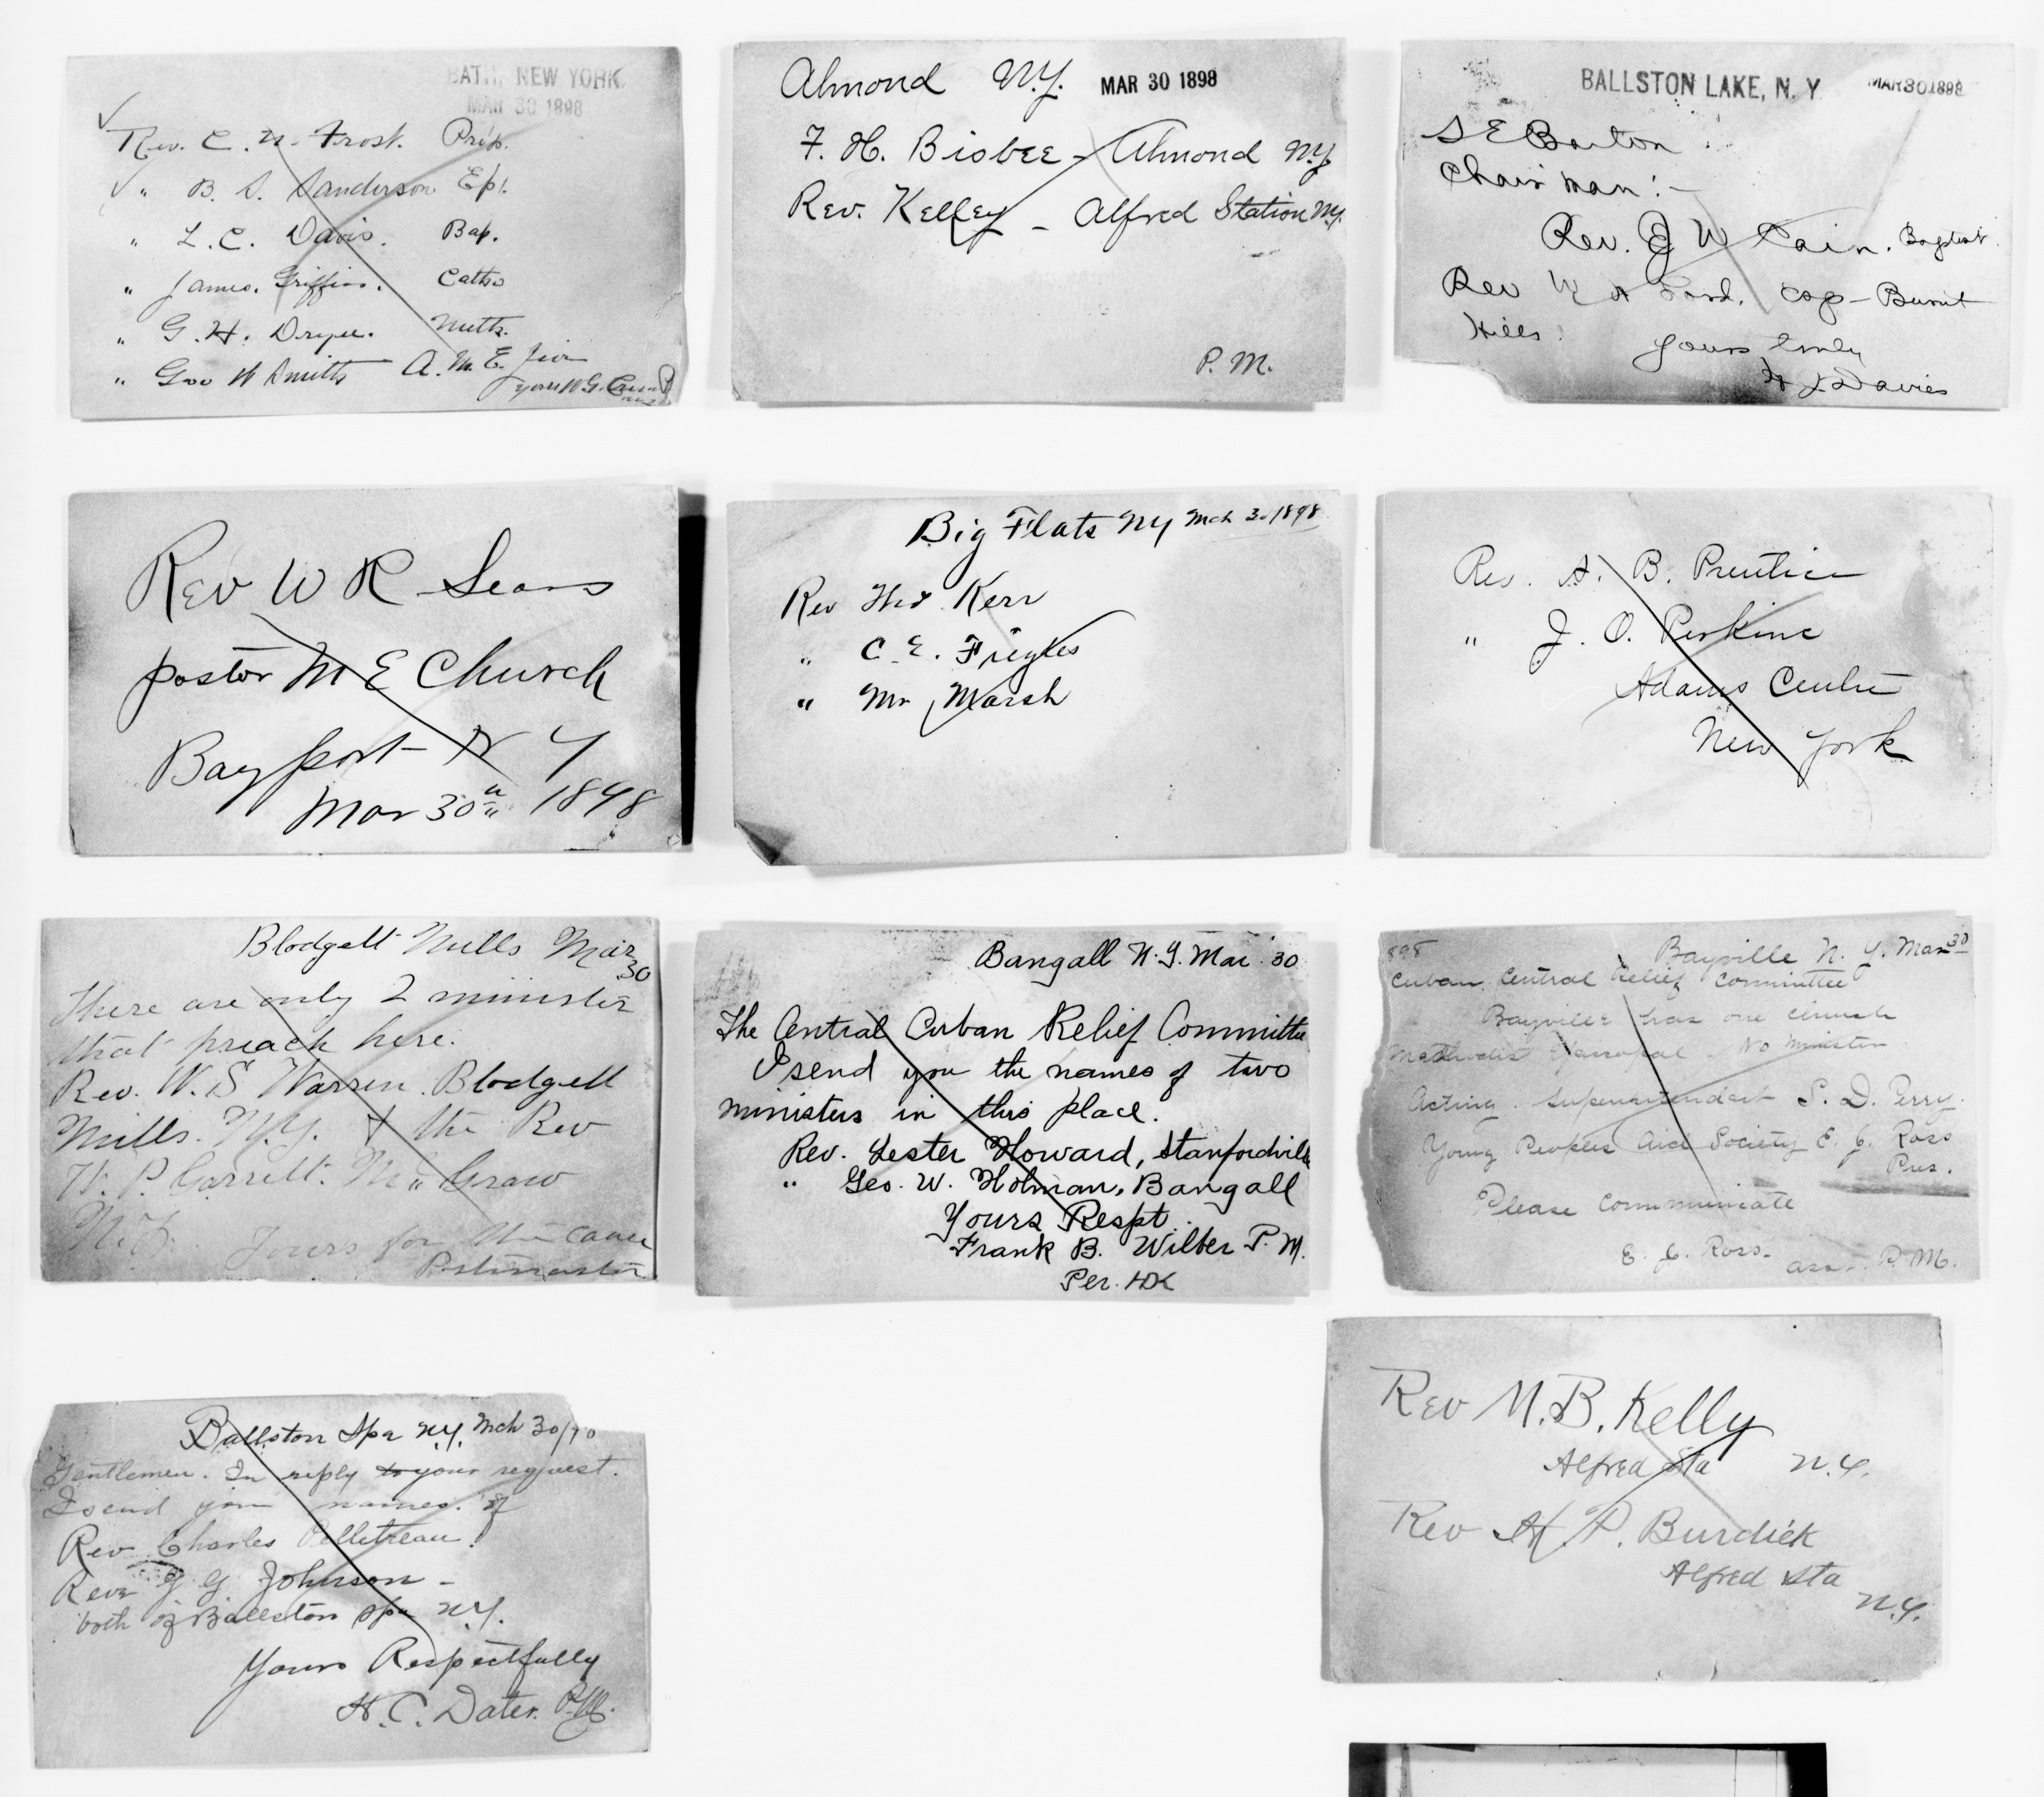 BATH, NEW YORK.
MAR 30 1898
Rev. C. N. Frost. Prsb.
" B. S. Sanderson Epl.
" L. C. Davis. Bap.
" James. Griffin. Catho
" G. H. Dryer. Meth.
" Geo W Smith A. M. E. Zion
Yours W. G.
Almond N.Y. MAR 30 1898
F. H. Bisbee - Almond N.Y.
Rev. Kelley - Alfred Station N.Y.
P. M.
BALLSTON LAKE, N. Y MAR 30 1898
S E Barton
Chairman:-
Rev. J W Cain. Baptist
Rev W A Ford. Epp - Burnt
Hills.
Yours truly
Davies
Rev W R Sears
pastor M E Church
Bayport N Y
Mar 30th 1898
Big Flats NY Mch 30 1898
Rev Kerr
" C. E.
" Mr Marsh
Rev. A. B. Prentice
" J. O. Perkins
Adams Centre
New York
Blodgett Mills Mar
30
There are only 2 minister
that preach here.
Rev. W. S Warren. Blodgett
Mills. N.Y. & the Rev
W. P. Garrett. Mc Graw
N.Y. Yours for the cause
Postmaster
Bangall N.Y. Mar. 30
The Central Cuban Relief Committe
I send you the names of two
ministers in this place.
Rev. Lester Howard, Stanfordville
" Geo. W. Holman, Bangall
Yours Respt.
Frank B. Wilber P. M.
Per. HDK
898 Bayville N. Y. Mar 30
Cuban Central Relief Committee
Bayville has one church
Methodist Episcopal No Minister
Acting. Superintendent S. D. Perry.
Young Peoples Aid Society E. J. Ross
Pres.
Please Communicate
E. J. Ross. asst. P. M.
Ballston Spa N.Y. Mch 30/
Gentlemen. In reply to your request.
I send you names. of
Rev Charles Pelletreau.
Rev G G Johnson -
both of Ballston Spa N.Y.
Yours Respectfully
H. C. Dater. P.M.
Rev M. B. Kelly
Alfred Sta N.Y.
Rev H. P. Burdick
Alfred Sta
N.Y.